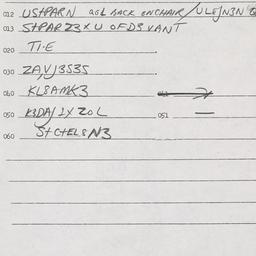 012 USTPARN BACK ONCHAIR /ULEJN3N
013 STPAR Z3XU OFDS VANT
020 TI-E
030 ZAVJ3S35
040 KL8AMK3
050 K3DAJ1X ZOL 051 —
060 STCTEL8N3